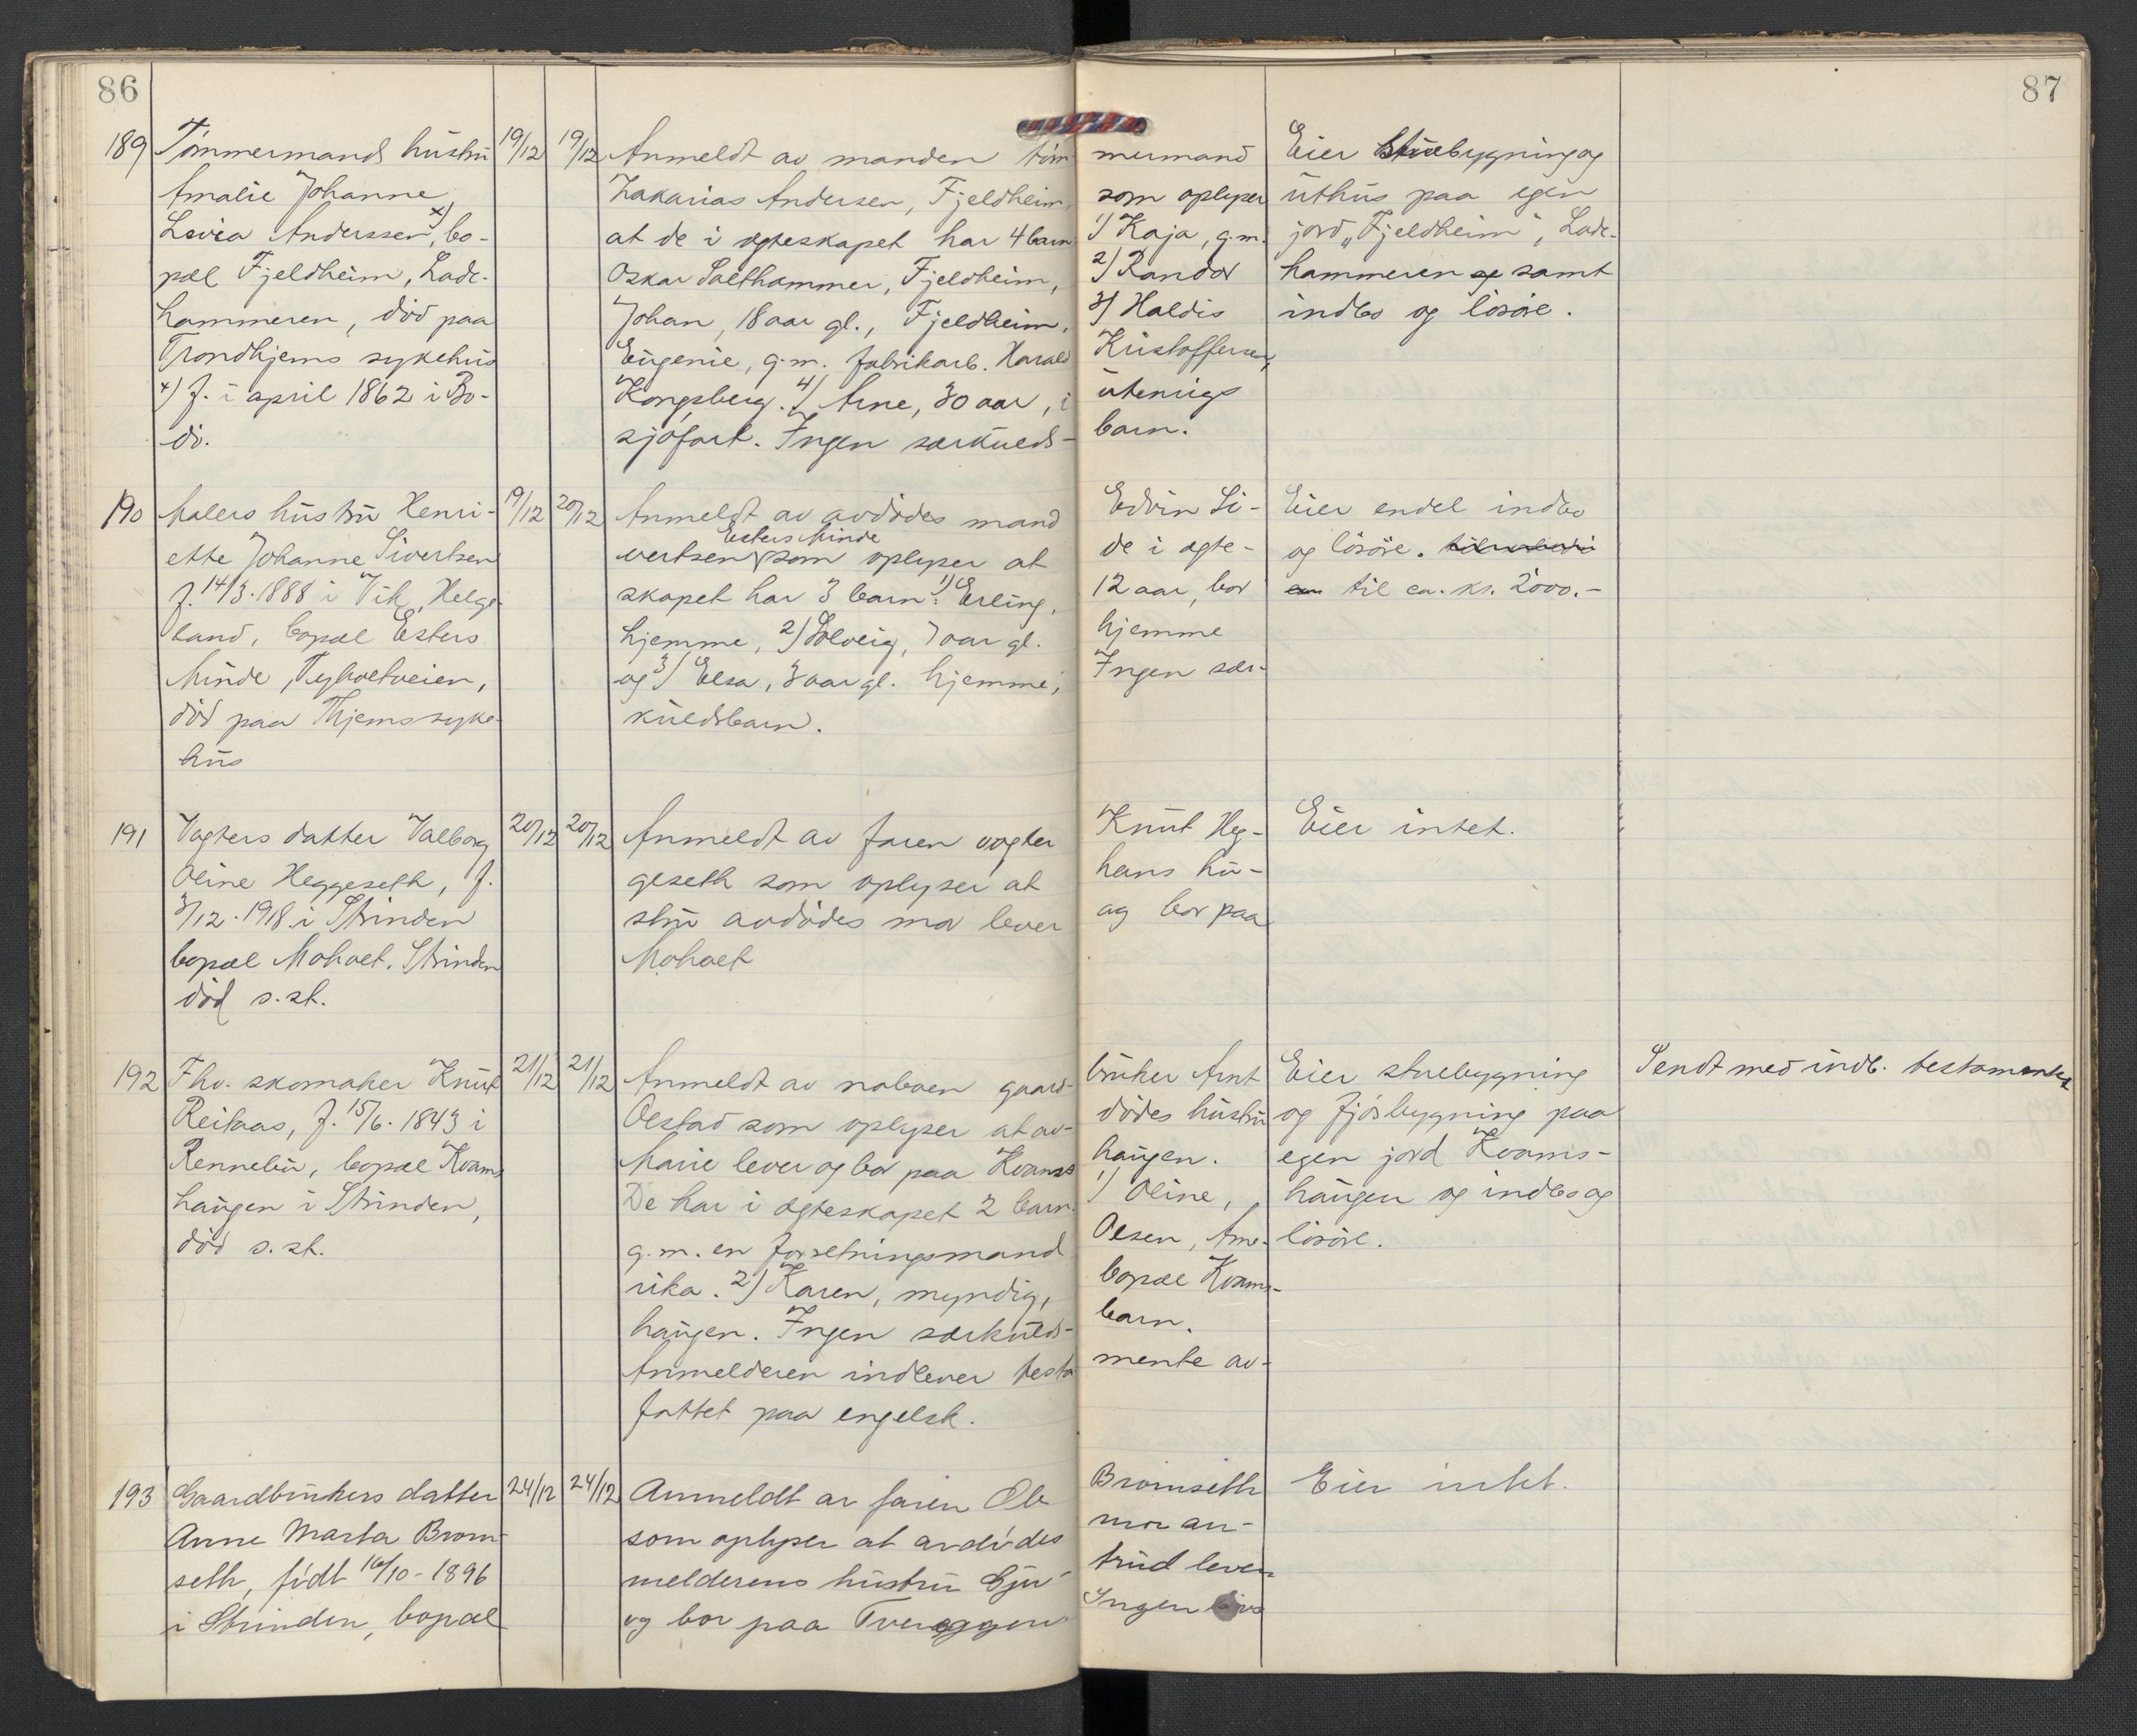 86
87
189 Tømmermands hustru 19/12 19/12 Anmeldt av manden tøm mermand Eier stuebygning og
Amalie Johanne Zakarias Andersen, Fjeldheim, som oplyser uthus paa egen
Lovisa Anderssen x), bo- at de i ægteskapet har 4 barn 1) Kaja, g.m. jord „Fjeldheim", Lade-
pæl Fjeldheim, Lade- Oskar Salthammer, Fjeldheim, 2) Randor hammeren samt
hammeren, død paa Johan, 18 aar gl., Fjeldheim, 3) Haldis indbo og løsøre.
Trondhjems sykehus Eugenie, g.m. fabrikarb. Harald Kristoffersen,
x) f. i april 1862 i Bo- Kongsberg. 4) Arne, 30 aar, i utenrigs
dø. sjøfart. Ingen særkulds- barn.
190 Malers hustru Henri- 19/12 20/12 Anmeldt av avdødes mand Edvin Si- Eier endel indbo
ette Johanne Sivertsen vertsen Esters Minde som oplyser at de i ægte- og løsøre.
f. 14/3.1888 i Vik, Helge- skapet har 3 barn: 1) Erling, 12 aar, bor til ca. kr. 2000.-
land, bopæl Esters hjemme, 2) Solveig, 7 aar gl. hjemme
Minde, Tyholtveien, og 3) Elsa, 3 aar gl. hjemme, Ingen sær-
død paa Thjems syke- kuldsbarn.
hus
191 Vagters datter Valborg 20/12 20/12 Anmeldt av faren vagter Knut Heg- Eier intet.
Oline Heggeseth, f. geseth som oplyser at hans hu-
3/12.1918 i Strinden stru avdødes mor lever og bor paa
bopæl Moholt, Strinden Moholt
død s.st.
192 Fhv. skomaker Knut 21/12 21/12 Anmeldt av naboen gaard- bruker Arnt Eier stuebygning Sendt med indb. testamente
Reitaas, f. 15/6.1843 i Olstad som oplyser at av- dødes hustru og fjøsbygning paa
Rennebu, bopæl Kvams Marie lever og bor paa Kvams haugen. egen jord Kvams-
haugen i Strinden, De har i ægteskapet 2 barn. 1) Oline, haugen og indbo og
død s.st. g.m. en forretningsmand Olsen, Ame- løsøre.
rika. 2) Karen, myndig, bopæl Kvams-
haugen. Ingen særkulds- barn.
Anmelderen indlever testa mente av-
fattet paa engelsk.
193 Gaardbrukers datter 24/12 24/12 Anmeldt av faren Ole Bromseth Eier intet.
Anne Marta Brom- som oplyser at avdødes mor an-
seth, født 16/10-1896 melderens hustru Gju- trud lever
i Strinden, bopæl og bor paa Tvereggen Ingen livs